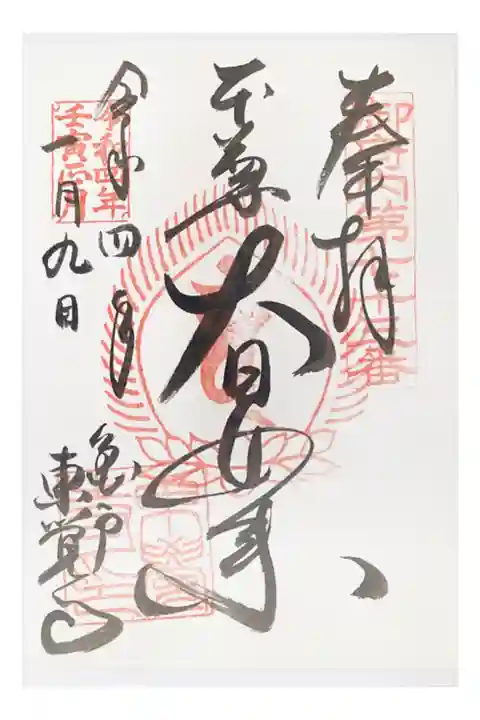 奉拝
御府内第七十三番
本尊 大日如来
令和四年
一月九日
令和四年
壬寅正月
亀戸
東覚寺